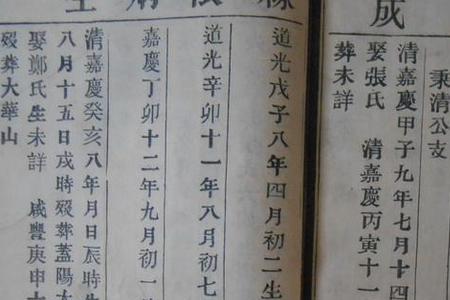 成
秉清公支
清嘉慶甲子九年七月十四
娶張氏 清嘉慶丙寅十一
葬未詳
道光戊子八年四月初二生
道光辛卯十一年八月初七
嘉慶丁卯十二年九月初一
清嘉慶癸亥八年月日辰時生
八月十五日戌時歿葬蓋陽
娶鄭氏生未詳 咸豐庚申
歿葬大華山